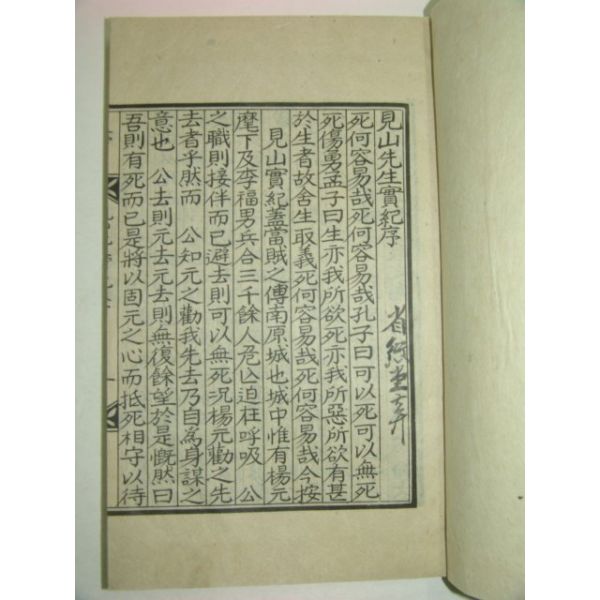 見山先生實紀序
死何容易哉死何容易哉孔子曰可以死可以無死
死傷勇孟子曰生亦我所欲死亦我所惡所欲有甚
於生者故舍生取義死何容易哉死何容易哉今按
見山實紀蓋當賊之傅南原城也城中惟有楊元
麾下及李福男兵合三千餘人危亾迫在呼吸 公
之職則接伴而已避去則可以無死况楊元勸之先
去者乎然而 公知元之勸我先去乃自為身謀之
意也 公去則元去元去則無復餘望於是慨然曰
吾則有死而已是將以固元之心而抵死相守以待